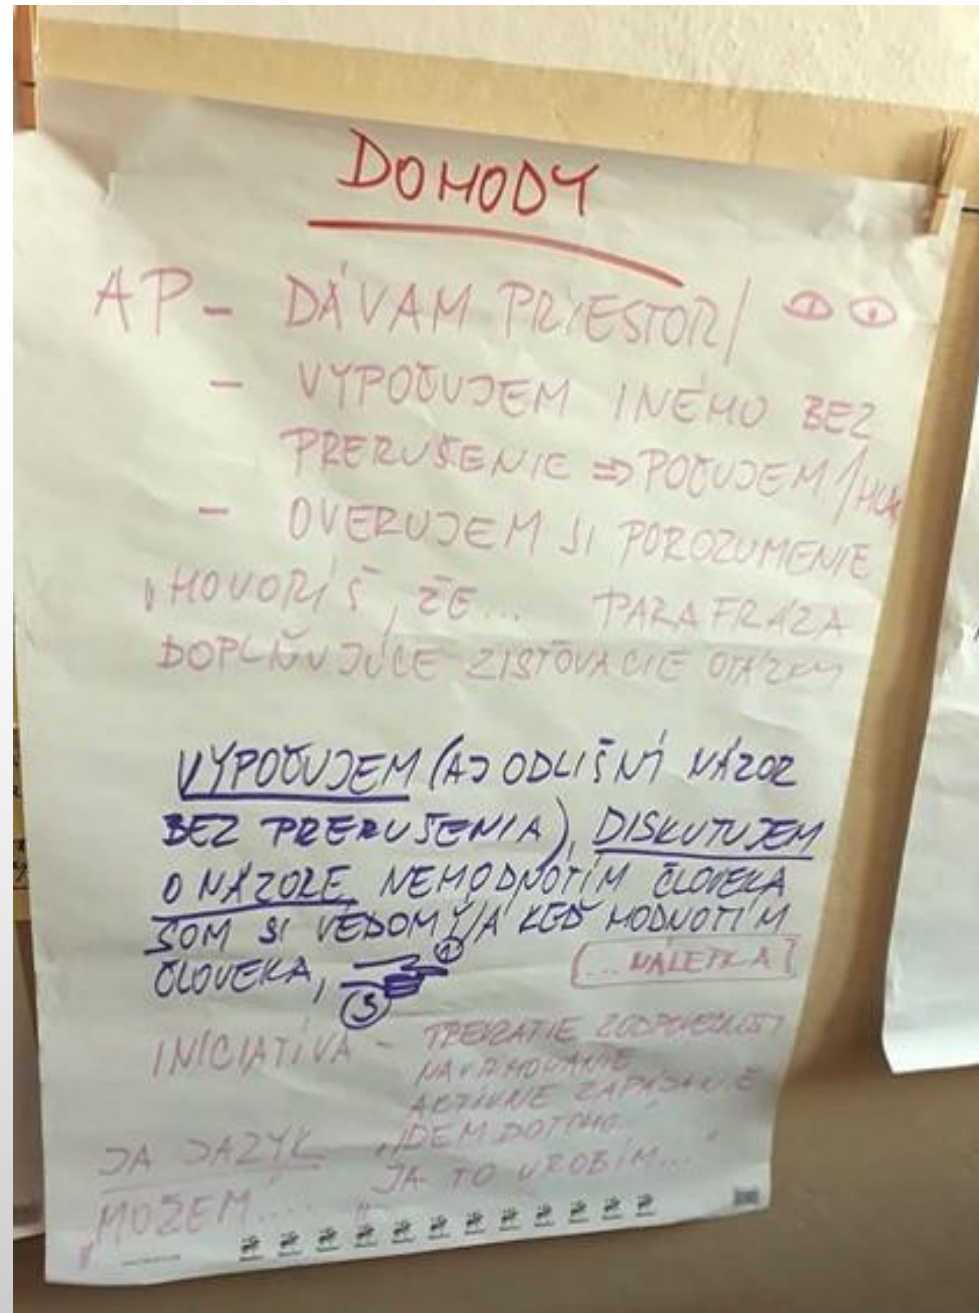 DOHODY
AP - DÁVAM PRIESTOR/
- VYPOČUJEM INÉHO BEZ
PRERUŠENIE ⇒ POČUJEM /
- OVERUJEM SI POROZUMENIE
"HOVORÍŠ, ŽE... PARAFRÁZA
DOPLŇUJÚCE ZISŤOVACIE OTÁZKY
VYPOČUJEM (AJ ODLIŠNÍ NÁZOR
BEZ PRERUŠENIA), DISKUTUJEM
O NÁZORE, NEHODNOTÍM ČLOVEKA
SOM SI VEDOMÝ/Á KEĎ HODNOTÍM
ČLOVEKA,
(... NÁLEPKA)
INICIATÍVA - PREVZATIE ZODPOVEDNOSTI
NAVRHOVANIE
AKTÍVNE ZAPÁJANIE
"IDEM DO TOHO..."
JA JAZYK JA TO UROBÍM..."
"MÔŽEM.... "